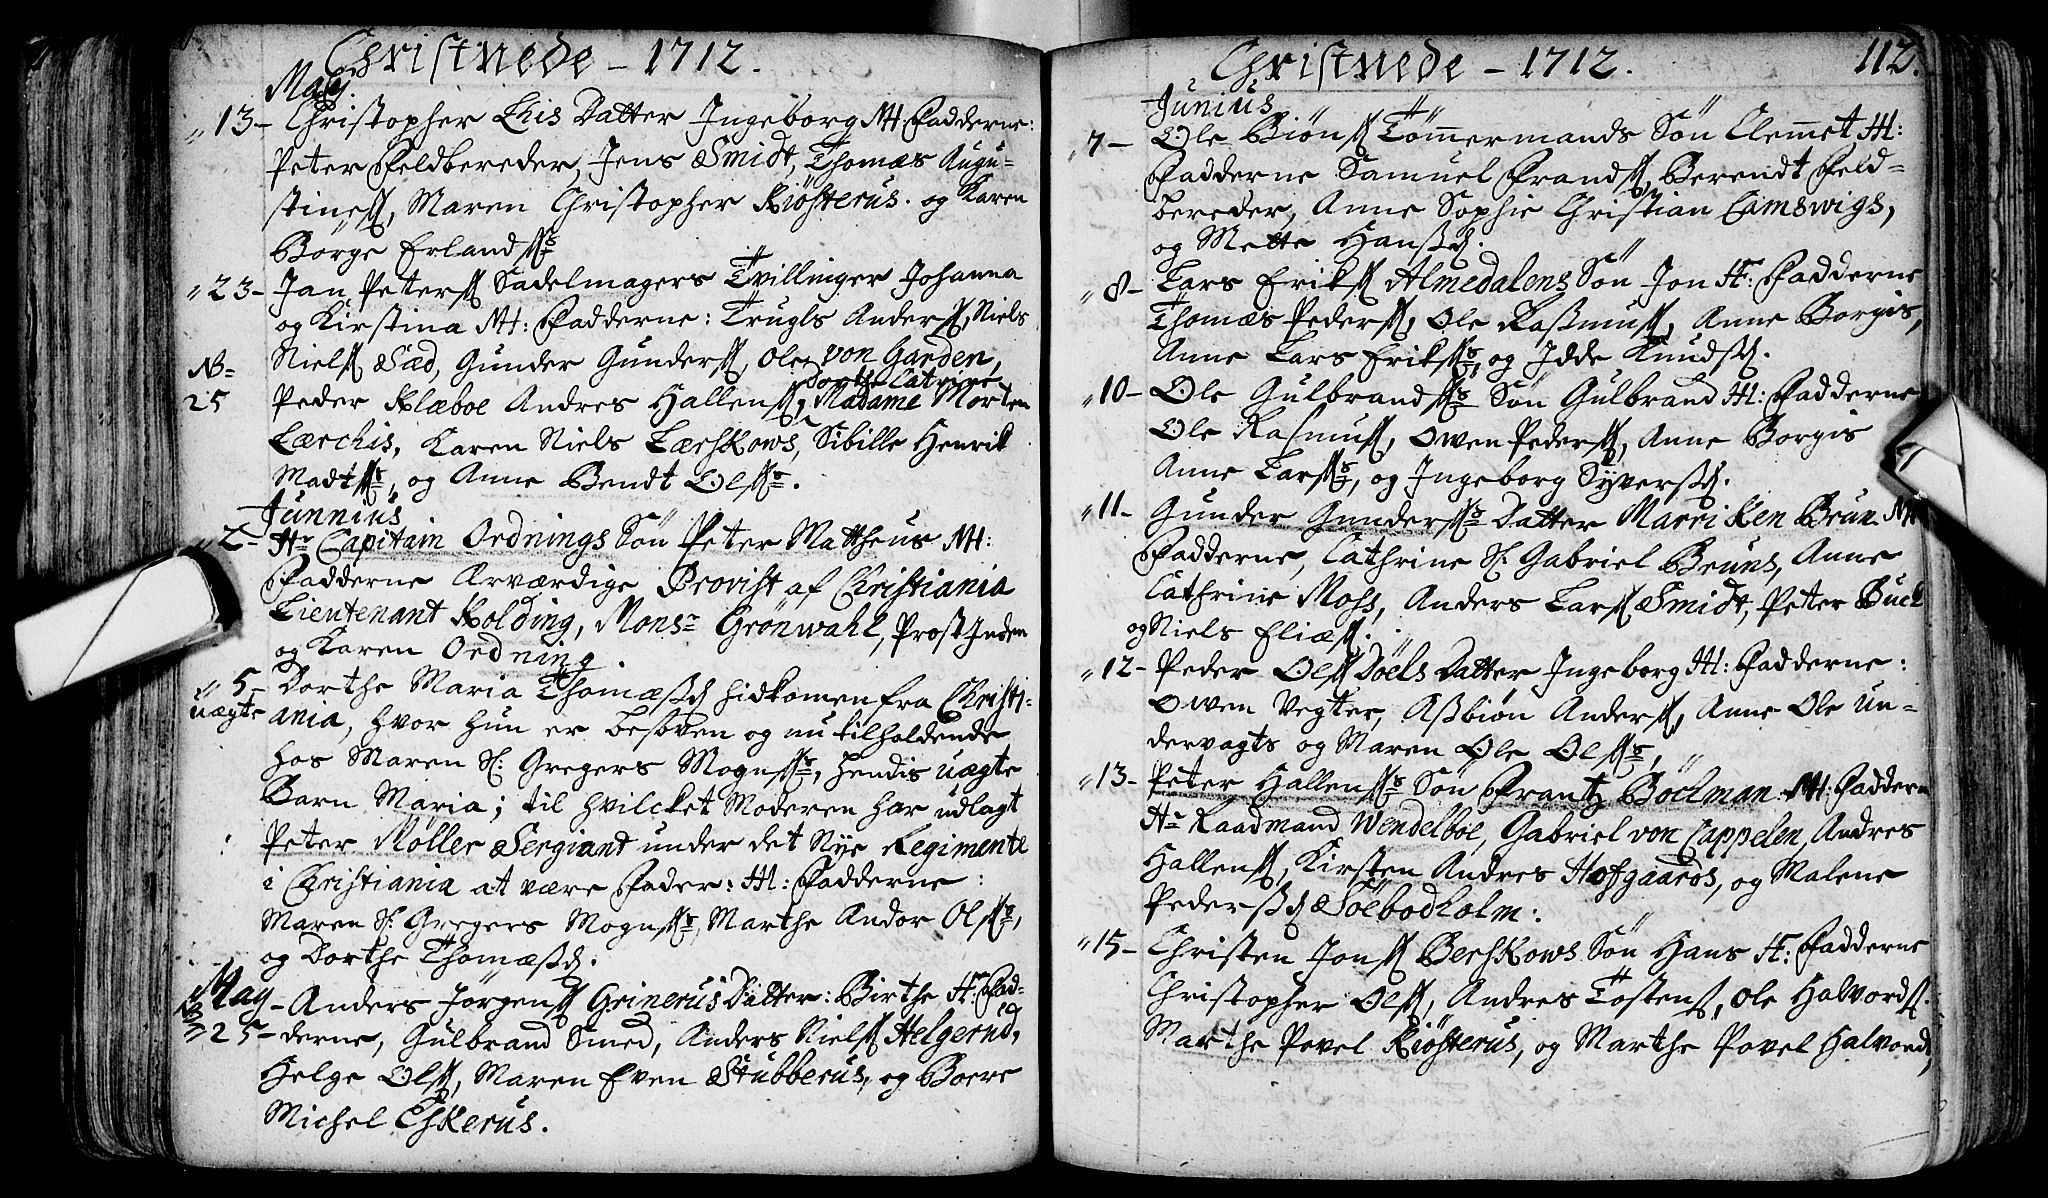 Christnede - 1712.
Maÿ.
13 - Christopher Chis Datter Ingeborg M: Fadderne:
Peter Feldbereder, Jens Smidt, Thomæs Augu-
stines, Maren Christopher Kiösterus. og Karen
Börge Erlands
23 - Jan Peters Sadelmagers Tvillinger Johanna
og Kirstina M: Fadderne: Trugls Anders, Niels
NB Niels Sæd, Gunder Gunders, Ole von Garden,
Dorthe Catrine
25 Peder Klæboe Andres Hallens, Madame Morten
Lærchis, Karen Niels Lærskows, Sibille Henrik
Madts, og Anne Bendt Ols.
Junnius
2 - Hr Capitain Ordnings Sön Peter Mattheus M:
Fadderne Ærværdige Provist af Christiania
Lieutenant Kolding, Monsr Grönwahl, Prost Inden
og Karen Ordning.
5 - Dorthe Maria Thomæsd hidkomen fra Christi-
uægte ania, hvor hun er besoven og nu tilholdende
hos Maren Sl: Gregers Mogns, hendis uægte
Barn Maria; til hvilcket Moderen har udlagt
Peter Møller Sergiant under det Nye Regimente
i Christiania at være Fader: M: Fadderne:
Maren Sl: Gregers Mogns, Marthe Andor Ols,
og Dorthe Thomæsd.
May - Anders Jørgens Grinerus Datter: Birthe H: Fad-
25 - derne, Gulbrand Smed, Anders Niels Helgerud,
Helge Ols, Maren Even Stubberus, og Boere
Michel Eskerus.
Christnede - 1712. 112.
Junius
7 - Ole Biöns Tömmermands Sön Clemet M:
Fadderne Samuel Frands, Berendt Feld-
bereder, Anne Sophie Christian Camswigs,
og Mette Hansd.
8 - Lars Eriks Almedalens Sön Jon H: Fadderne
Thomæs Peders, Ole Rasmus, Anne Borgis,
Anne Lars Eriks, og Idde Knudsd.
10 - Ole Gulbrands Sön Gulbrand M: Fadderne
Ole Rasmus, Owen Peders, Anne Borgis
Anne Lars, og Ingeborg Syversd.
11 - Gunder Gunders Datter Marriken Brun M
Fadderne, Cathrine Sl. Gabriel Bruns, Anne
Cathrine Moss, Anders Lars Smidt, Peter Buch
og Niels Eliæs.
12 - Peder Ols Döels Datter Ingeborg M: Fadderne:
Owen Vegter, Asbiön Anders, Anne Ole Un-
dervagts og Maren Ole Ols,
13 - Peter Hallens Sön Frantz Böelman M: Faddern
Hr Raadmand Wendelboe, Gabriel von Cappelen, Andres
Hallens, Kirsten Andres Hofgaards, og Malene
Pedersd Söebodholm:
15 - Christen Jons Berskows Sön Hans H: Fadderne
Christopher Ols, Andres Tostens, Ole Halvords.
Marthe Povel Kiösterus, og Marthe Povel Halvords,